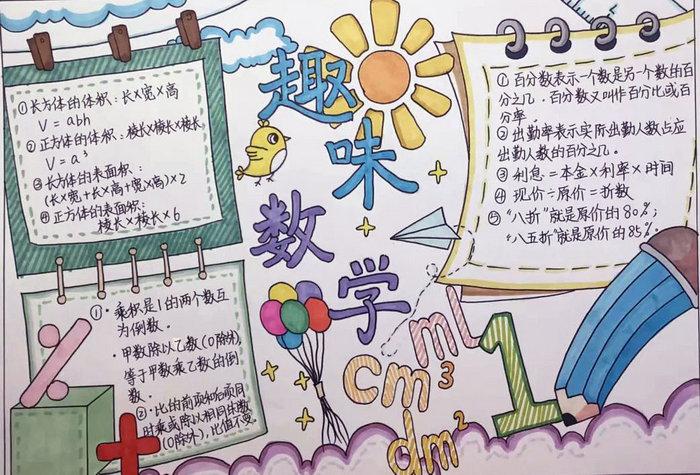 趣味
数学
①长方体的体积：长×宽×高
V=abh
②正方体的体积：棱长×棱长×棱长
V=a³
③长方体的表面积：
(长×宽+长×高+宽×高)×2
④正方体的表面积：
棱长×棱长×6
①·乘积是1的两个数互
为倒数。
·甲数除以乙数(0除外),
等于甲数乘乙数的倒
数。
②·比的前项和后项同
时乘或除以相同的数
(0除外),比值不变
①百分数表示一个数是另一个数的百
分之几.百分数又叫作百分比或百
分率.
②出勤率表示实际出勤人数占应
出勤人数的百分之几。
③利息=本金×利率×时间
④现价÷原价=折数
⑤"八折"就是原价的80%;
"八五折"就是原价的85%.
ml
cm³
dm²
1